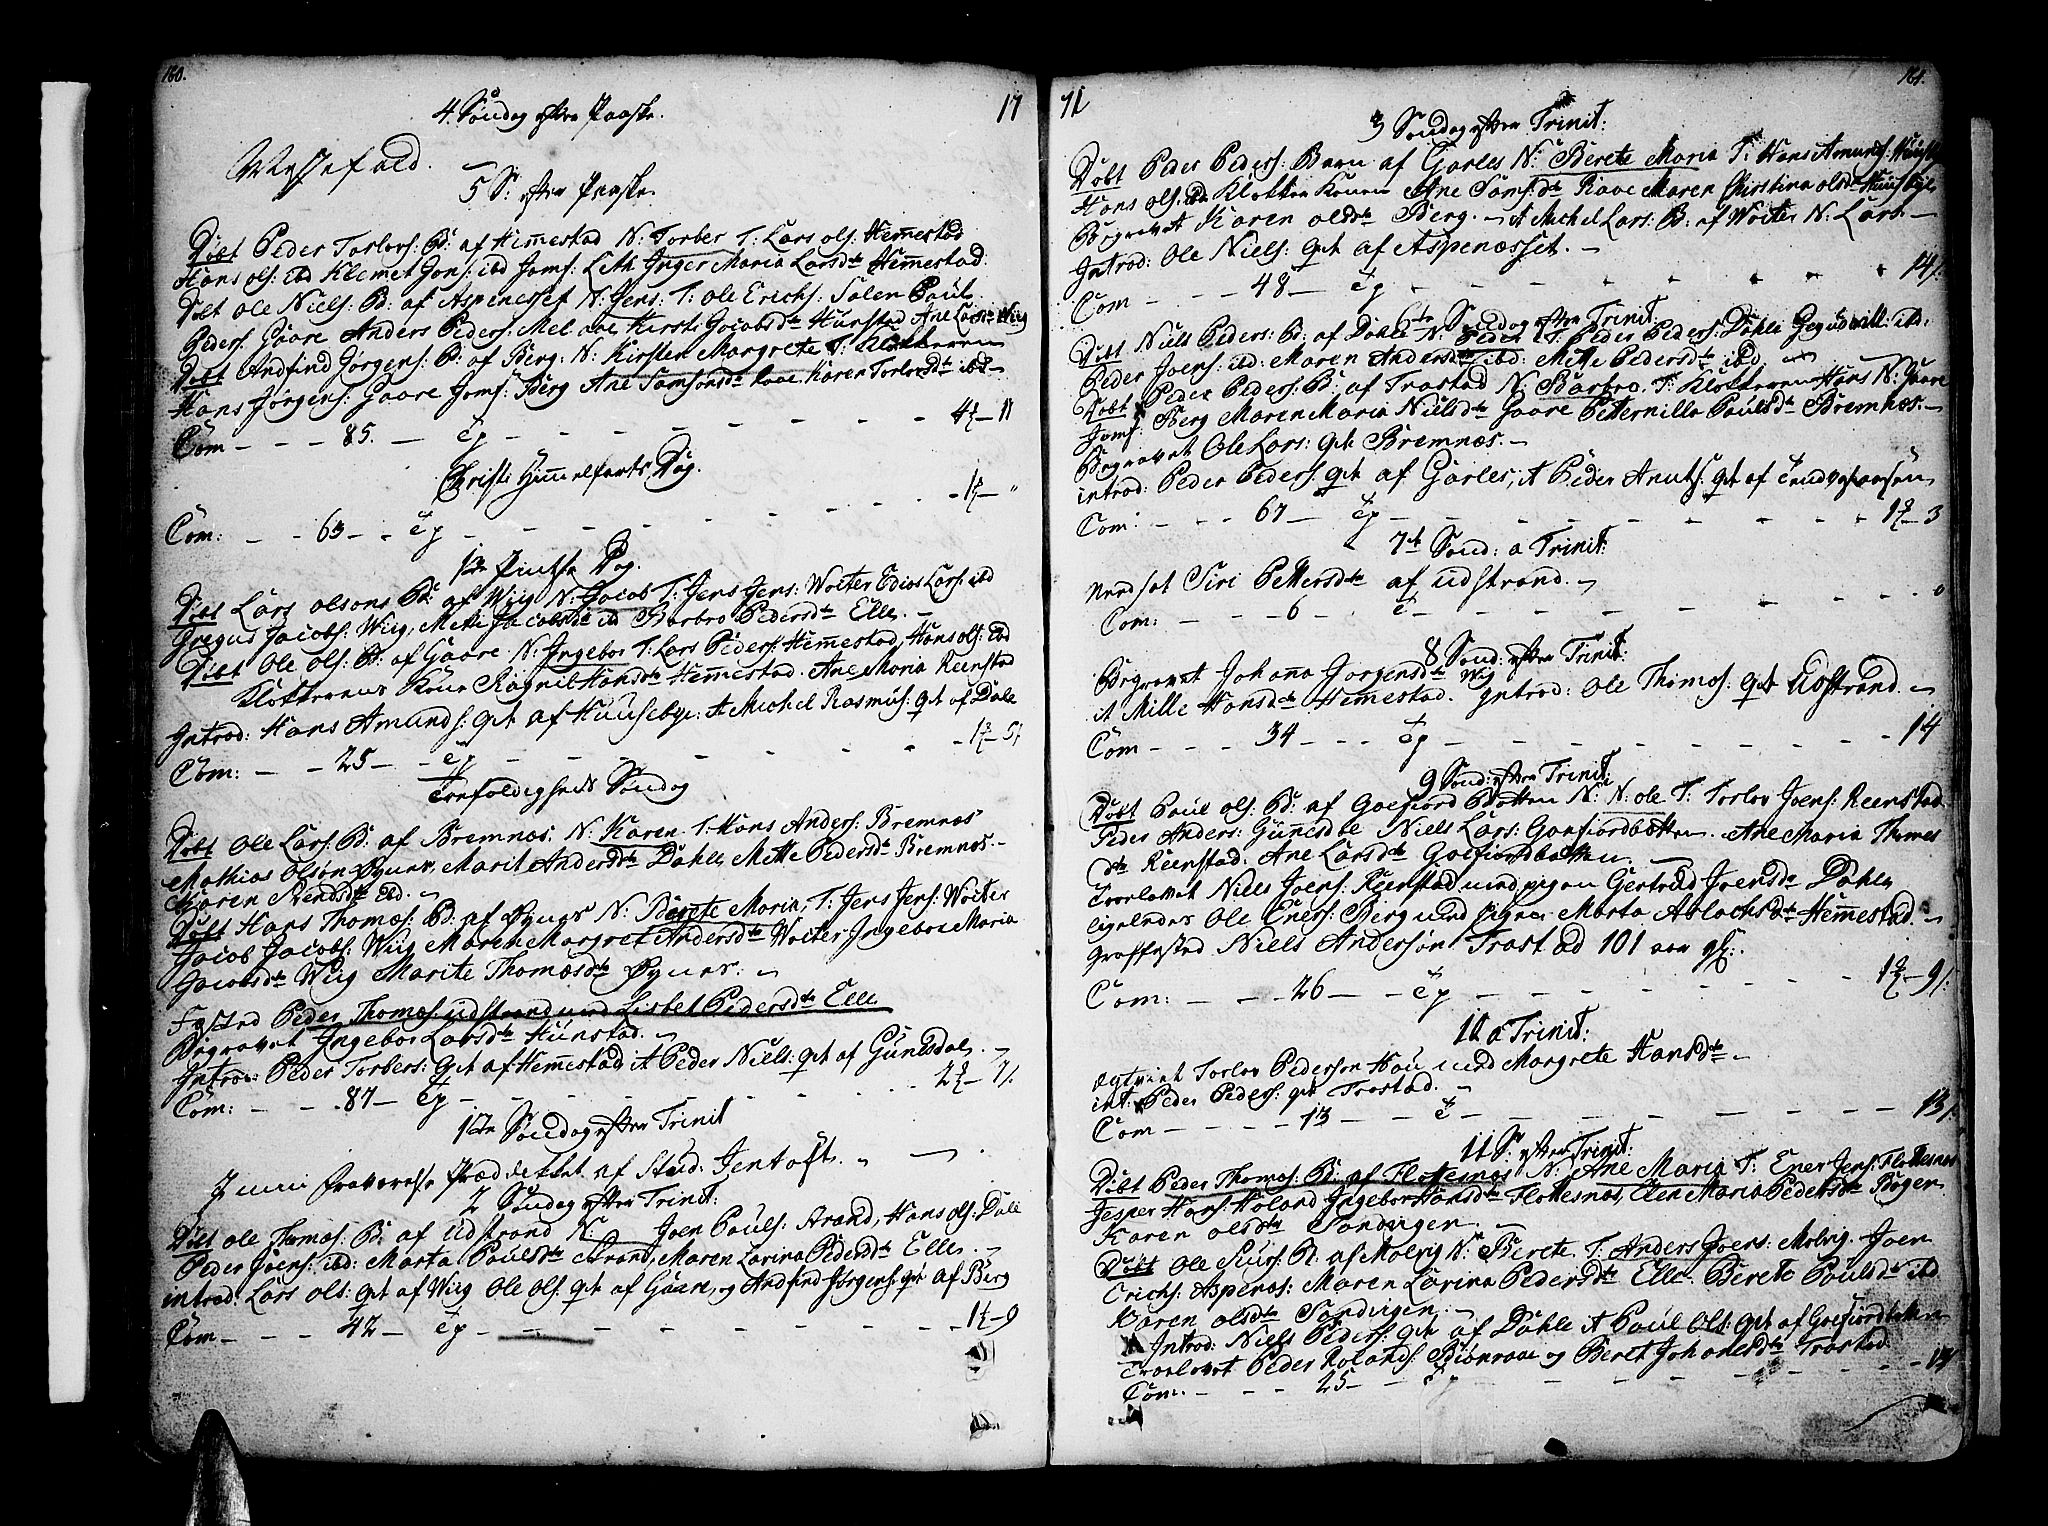 160.
17
4. Søndag efter Paaske.
Messefald.
5 S: efter Paaske.
Døbt Peder Torlevs: B: af Hemmestad N: Torber T: Lars ols: Hemmestad
Hans ols: ibd Klemet Jons: ibd Jomf: Leth Inger Maria Larsdtr Hemmestad
Døbt Ole Niels: B: af Aspenesset N: Jens: T: Ole Erichs: Salen Poul
Peders: Gaare Anders Peders: Mel aae Kirsti Jacobsdtr Hunstad Ane Larsdtr Wiig
Døbt Andfind Jørgens: B: af Berg: N: Kirsten Margrete T: Klokkeren
Hans Jørgens: Gaare Jomf: Berg Ane Samsonsdtr Raae Karen Torlevsdtr ibd -
Com - - - 85. - - - - - - - 4 - 11
Christi Himmelfarts Dag.
Com: - - 63 - - - - - - - 1 -
1ste Pintse Dag.
Døbt Lars olsøns B: af Wiig N: Jacob T: Jens Jens: Wolter Edias Lars: ibd
Gregus Jacobs: Wiig, Mette Jacobsdtr ibd Barbro Pedersdtr Elle. -
Døbt Ole Ols: B: af Gaare N: Ingebor T: Lars Peders: Hemmestad, Hans ols: ibd
Klokkerens Kone Ragnil Hansdtr Hemmestad. Ane Maria Reenstad
Introd: Hans Amunds: qvt af Huusebye: It Michel Rasmus: qvt af Dale
Com: - - 25 - - - - - - 1 - 5
Trefoldigheds Søndag
Døbt Ole Lars: B: af Bremnæs: N: Karen T: Hans Anders: Bremnæs
Mathias Olsøn Øynes, Marit Andersdtr Dahle Mette Pedersdtr Bremnæs. -
Karen Svendsdtr ibd. -
Døbt Hans Thomæs: B: af Øynes N: Berete Maria, T: Jens Jens: Wolter
Jacob Jacobs: Wiig Maren Margret Andersdtr Wolter Ingebor Maria
Jacobsdtr Wiig Marite Thomæsdtr Øynes. -
Fæsted Peder Thomæs: udstrand med Lisbet Pedersdtr Elle
Begravet Ingebor Larsdtr Hunstad. -
Introd: Peder Torbers: qvt af Hemmestad, it Peder Niels: qvt af Gunesdal. -
Com: - - 87 - - - - - - 2 - 7
1ste Søndag efter Trinit
I min fraværelse Prædikket af Stud: Jentoft. -
2 Søndag efter Trinit:
Døbt ole Thomæs: B: af Udstrand N: Joen Pouls: Strand, Hans ols: Dale
Peder Joens: ibd: Marta Poulsdtr Strand, Maren Larina Pedersdtr Elle. -
introd: Lars ols: qvt af Wiig Ole Ols: qvt af Gaare, og Andfind Jørgens: qvt af Berg
Com - - - 42 - - - - - - 1 - 9
161.
71
3 Søndag efter Trinit:
Døbt Peder Peders: Barn af Garles N: Berete Maria T: Hans Amunds: Huusby
Hans ols: ibd Klokker Konen Ane Samsdtr Raae Maren Christina olsdtr Huusbye
Begravet Karen olsdtr Berg. - it Michel Lars: B: af Wolter N: Lars. -
Introd: Ole Niels: qvt af Aspenæsset. -
Com - - - 48 - - - - - - 14
6te Søndag efter Trinit:
Døbt Niels Peders: B: af Dahle N: Peder T: Peder Peders: Dahle ibd:
Peder Joens: ibd: Maren Andersdtr ibd: Mette Pedersdtr ibd -
Døbt Peder Peders: B: af Trastad N: Barbro T: Klokkeren Hans N: Gaare
Jomf: Berg Maren Maria Nielsdtr Gaare Petternille Paulsdtr Bremnæs. -
Begravet Ole Lars: qvt Bremnæs. -
introd: Peder Peders: qvt af Garles, it Peder Knuts: qvt af
Com: - - - 67 - - - - - - 1 - 3
7de Sond: a Trinit:
Nedsat Siri Pettersdtr af udstrand. -
Com: - - - 6 - - - - - -
8 Sønd: efter Trinit:
Begravet Johana Jorgensdtr Wig
it Mille Hansdtr Hemestad. Introd: Ole Thomæs: qvt Udstrand. -
Com - - - 34 - - - - - - 14
9 Sønd: efter Trinit:
Døbt Poul ols: B: af Goefiord Botten N: N: ole T: Torlev Joens: Reenstad
Peder Anders: Gunesdle Niels Lars: Goefiordbotten. Ane Maria Thomes
dtr Reenstad. Ane Larsdtr Goefiordbotten. -
Trolovet Niels Joens: Reenstad med pigen Gertrud Joensdtr Dahle
ligeledes Ole Eners: Berg med pigen Marta Aslachsdtr Hemmestad. -
Graffæsted Niels Andersøn Trastad 101 aar gl:
Com: - - - 26 - - - - - - 1 - 9
10 a Trinit:
Ægtviet Torlev Pedersen Hou med Margrete Hansdtr -
int: Peder Peders: qvt Trastad. -
Com - - - 13 - - - - - - 13
11 S: efter Trinit:
Døbt Peder Thomæs: B: af Flottesnæs N: Ane Maria T: Ener Jens: Flottesnæs
Jesper Hans: Holand Ingebor Hansdtr Flottesnæs, Elen Maria Pedersdtr Bogen
Karen olsdtr Sandvigen. -
Døbt Ole Siurs: B: af Molvig N: Berete. T: Anders Joens: Molvig. Joen
Erichs: Aspenæs: Maren Larina Pedersdtr Elle. Berete Poulsdtr ibd
Karen olsdtr Sandvigen. -
Introd: Niels Peders: qvt af Dahle it Poul Ols: qvt af Goefiordbotten
Trolovet Peder Rolands: Biønraae og Beret Johansdtr Trastad
Com: - - - 25 - - - - - - 13